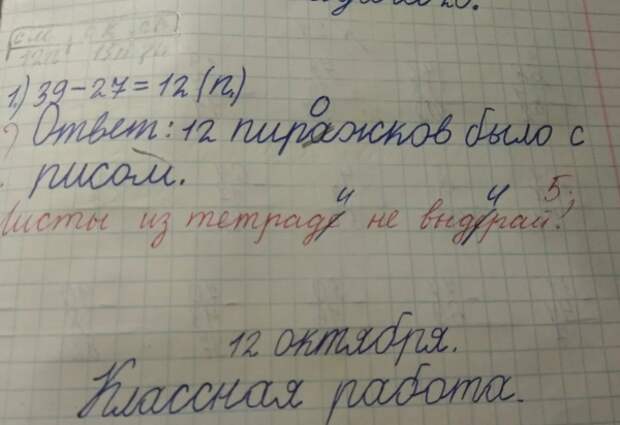 1.) 39-27=12 (п.)
о
Ответ: 12 пиражков было с
рисом.
и и 5;
Листы из тетраде не выдерай!
12 октября.
Классная работа.